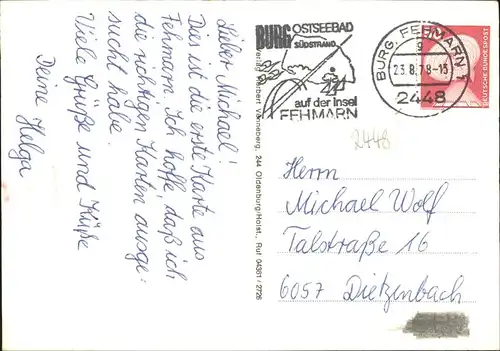 Lieber Michael!
Dies ist die erste Karte aus
Fehmarn. Ich hoffe, daß ich
die richtigen Karten ausge-
sucht habe.
Viele Grüße und Küße
Deine Helga
BURG OSTSEEBAD
SÜDSTRAND
auf der Insel
FEHMARN
BURG, FEHMARN 1
g
23.8.78-15
2448
DEUTSCHE BUNDESPOST
2448
244 Oldenburg/Holst., Ruf 04361 / 2726
Herrn
Michael Wolf
Talstraße 16
6057 Dietzenbach